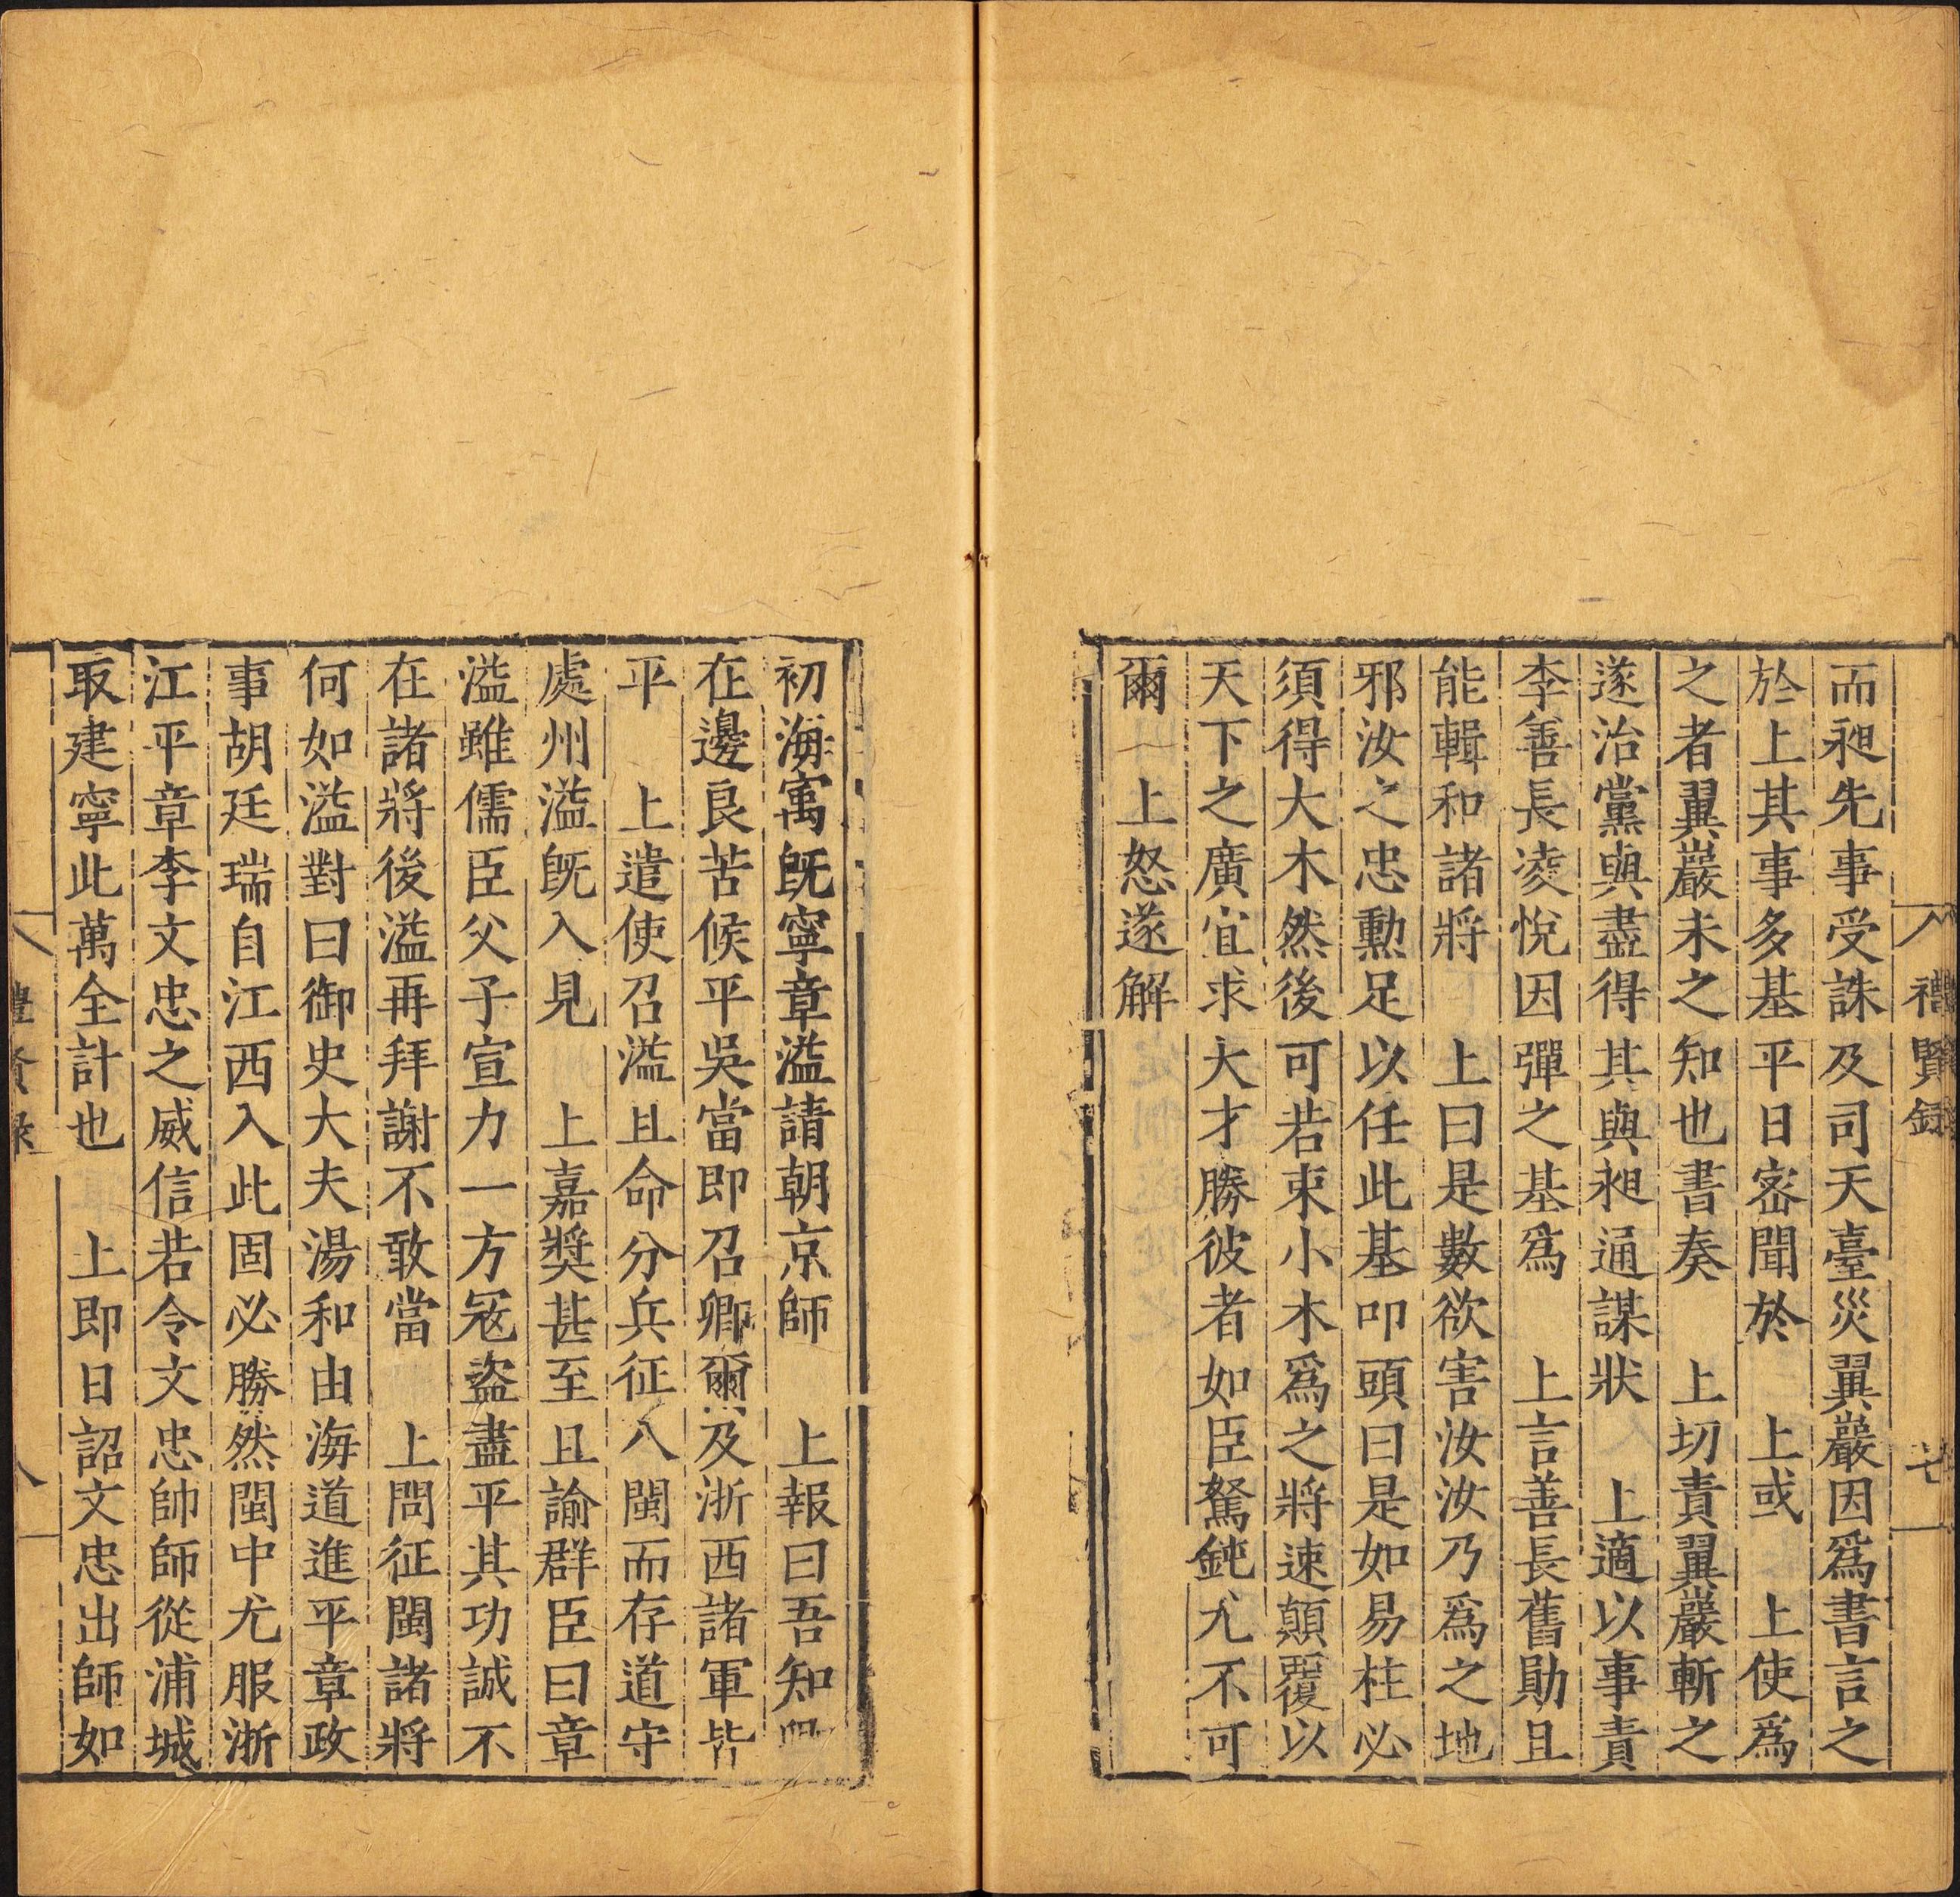 禮賢錄
七
而昶先事受誅及司天臺災翼巖因爲書言之
於上其事多基平日宻聞於　上或　上使爲
之者翼巖未之知也書奏　上切責翼巖斬之
遂治黨與盡得其與昶通謀狀　上適以事責
李善長凌悅因彈之基爲　上言善長舊勛且
能輯和諸將　上曰是數欲害汝汝乃爲之地
邪汝之忠勳足以任此基叩頭曰是如易柱必
須得大木然後可若束小木爲之將速顛覆以
天下之廣宜求大才勝彼者如臣駑鈍尤不可
爾　上怒遂解
初海寓既寧章溢請朝京師　上報曰吾知
在邊良苦候平吳當即召卿爾及浙西諸軍皆
平　上遣使召溢且命分兵征八閩而存道守
處州溢既入見　上嘉獎甚至且諭群臣曰章
溢雖儒臣父子宣力一方冦盜盡平其功誠不
在諸將後溢再拜謝不敢當　上問征閩諸將
何如溢對曰御史大夫湯和由海道進平章政
事胡廷瑞自江西入此固必勝然閩中尤服浙
江平章李文忠之威信若令文忠帥師從浦城
取建寧此萬全計也　上即日詔文忠出師如
八